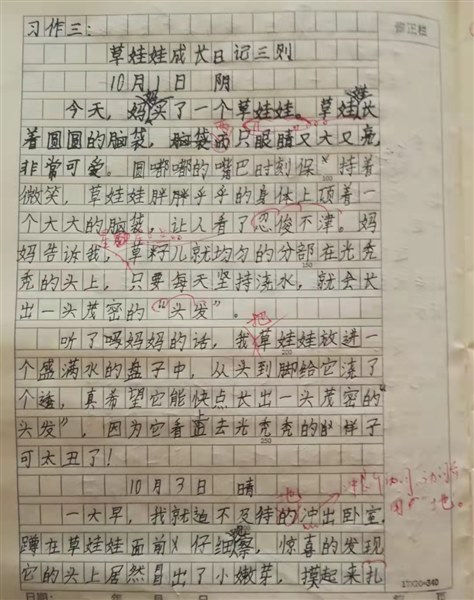 习作三：
修正栏
草娃娃成长日记三则
10月1日 阴
今天，妈买了一个草娃娃。草娃长
着圆圆的脑袋，脑袋两只眼睛又大又亮，
非常可爱。圆嘟嘟的嘴巴时刻保持着
微笑，草娃娃胖胖乎乎的身体上顶着一
个大大的脑袋，让人看了忍俊不津。妈
妈告诉我，草籽儿就均匀的分部在光秃
秃的头上，只要每天坚持浇水，就会长
出一头茂密的“头发”。
把
听了妈妈的话，我草娃娃放进一
个盛满水的盘子中，从头到脚给它浇了
个透，真希望它能快点长出一头茂密的“
头发”，因为它看上去光秃秃的的样子
可太丑了！
10月3日 晴
地
一大早，我就迫不及待的冲出卧室，
用“地”。
蹲在草娃娃面前仔细察，惊喜的发现
它的头上居然冒出了小嫩芽，摸起来扎
150
200
250
17X20=340
日期：